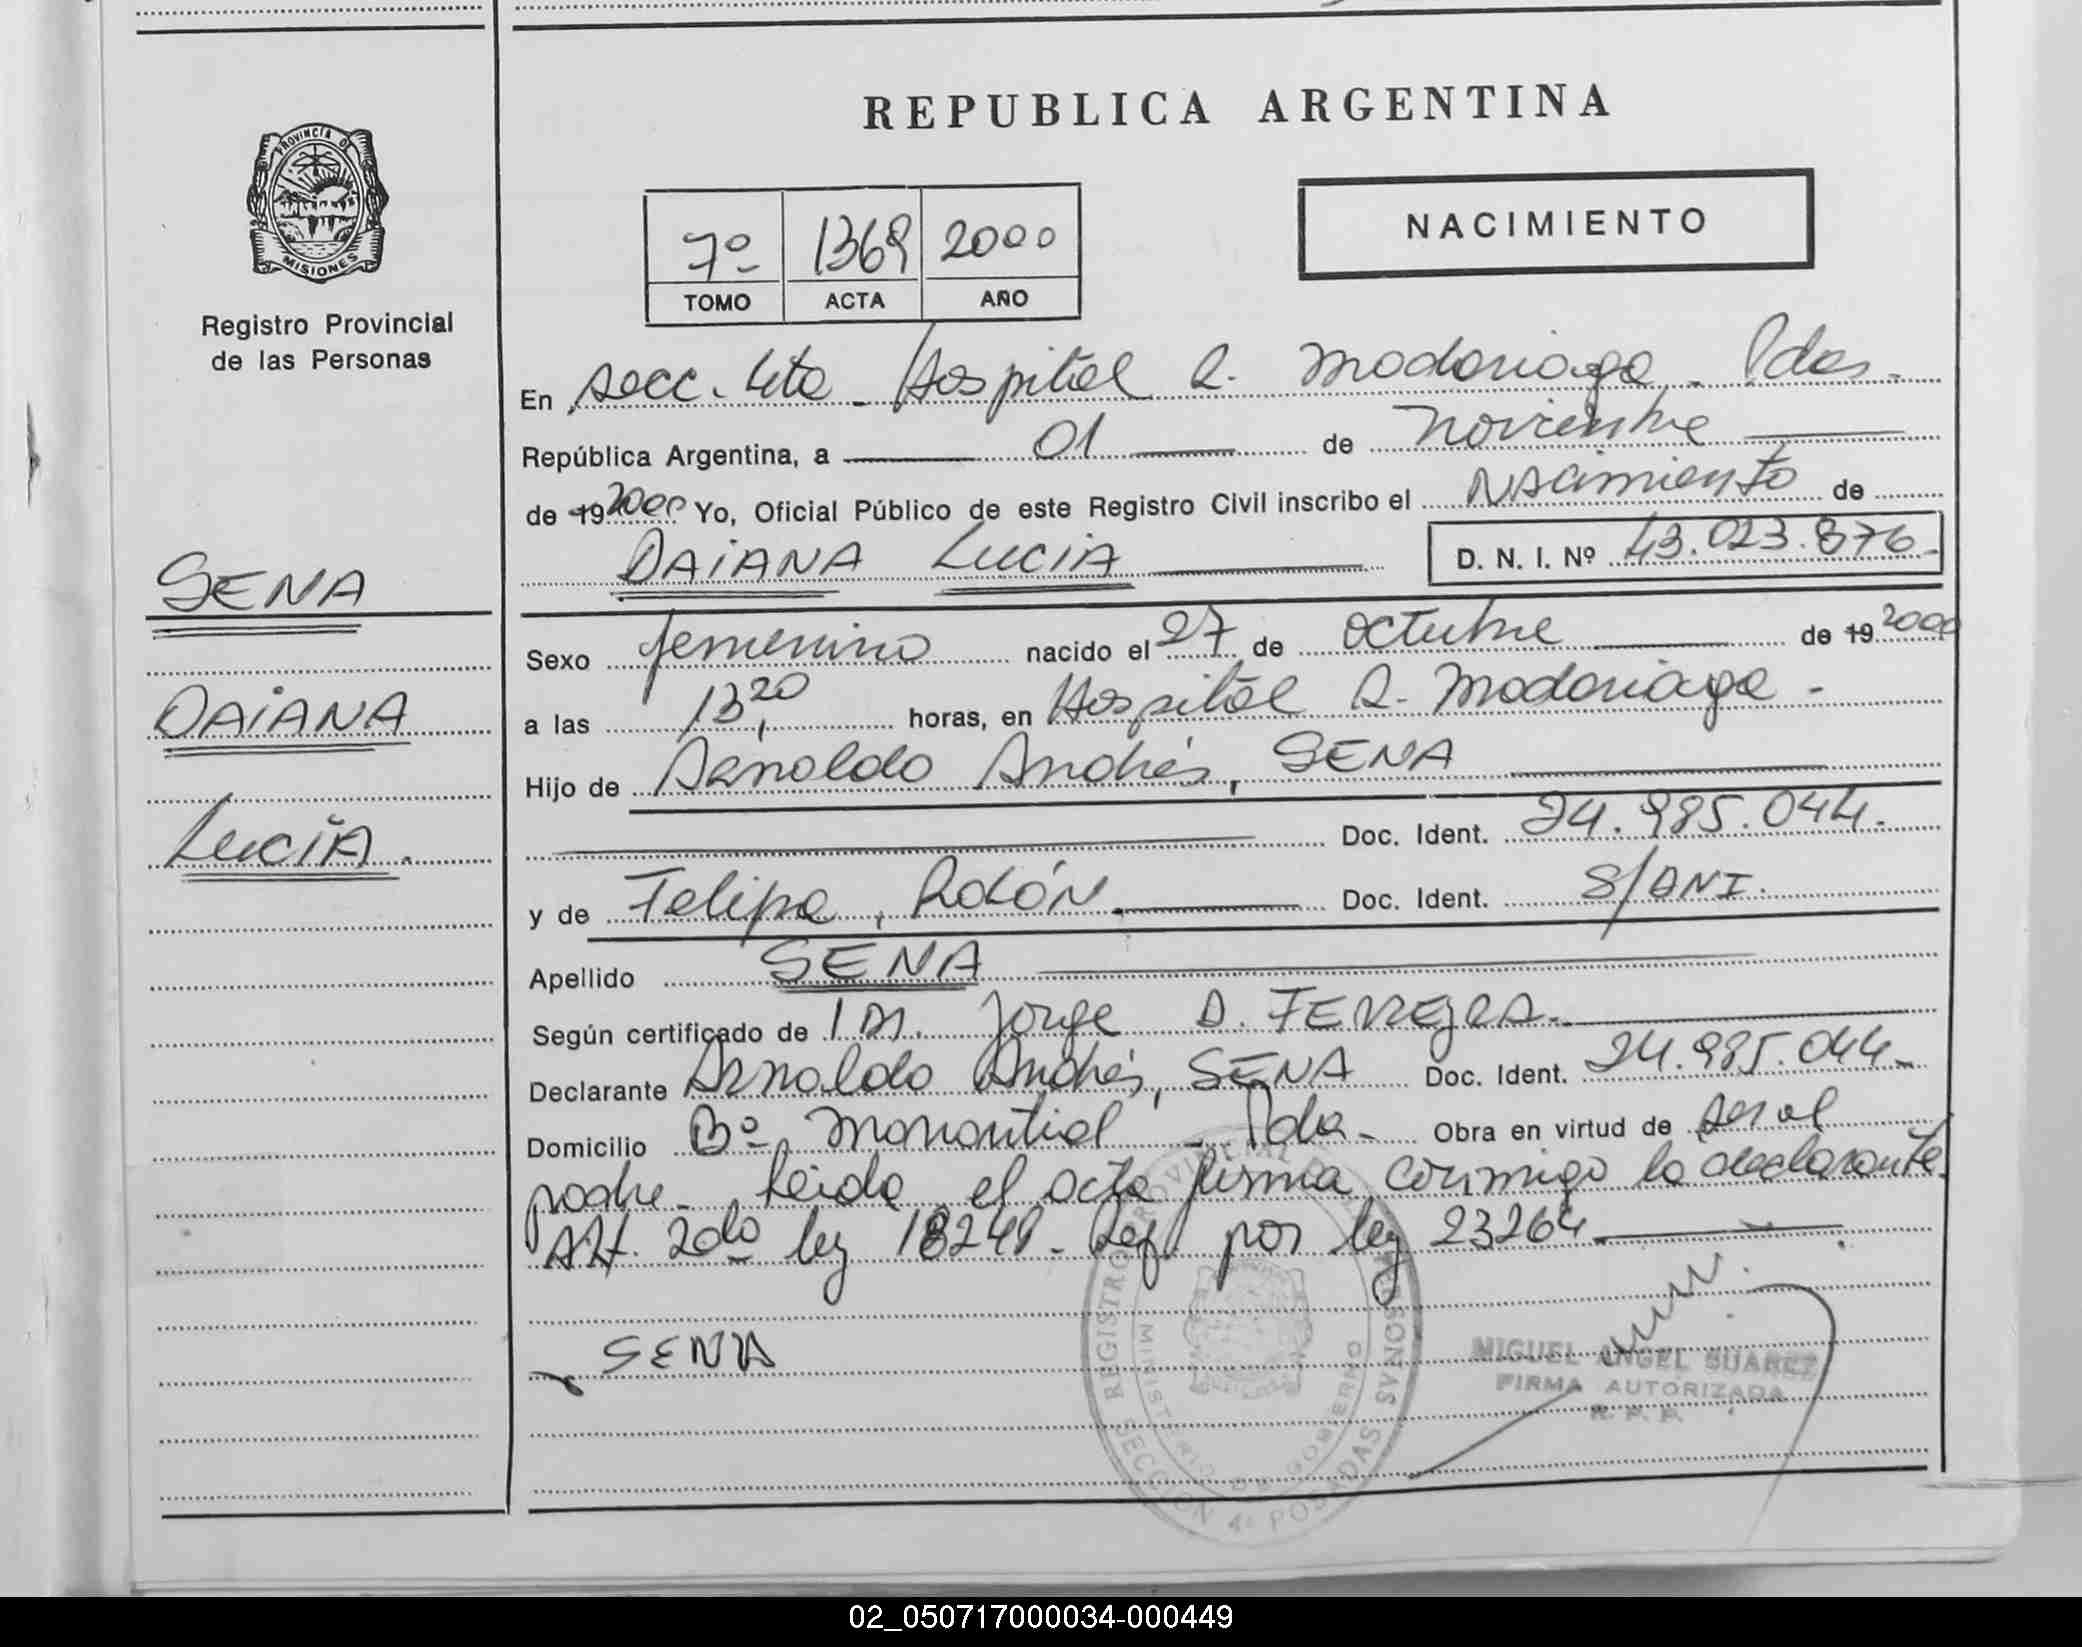 REPUBLICA ARGENTINA
NACIMIENTO
7º 1369 2000
TOMO ACTA AÑO
PROVINCIA DE
MISIONES
Registro Provincial
de las Personas
SENA
DAIANA
LUCIA.
En secc. 4ta - Hospital R. Madariaga - Pdas.
República Argentina, a 01 de noviembre
de 19 2000 Yo, Oficial Público de este Registro Civil inscribo el NAcimiento de
DAIANA LUCIA D. N. I. Nº 43.023.876-
Sexo femenino nacido el 27 de octubre de 19 2000
a las 13,20 horas, en Hospital R. Madariaga -
Hijo de Arnaldo Andrés, SENA
Doc. Ident. 24.985.044.
y de Felipa, ROLÓN. Doc. Ident. S/DNI.
Apellido SENA
Según certificado de Dr. Jorge D. FERREYRA.
Declarante Arnaldo Andrés, SENA Doc. Ident. 24.985.044-
Domicilio Bº Manantial - Pda- Obra en virtud de ser el
padre - Leida el acta firma conmigo la declarante.
Art. 2do ley 18248 - Ref. por ley 23264.
SENA
REGISTRO PROVINCIAL PERSONAS
MINISTERIO DE GOBIERNO
SECCION 4ª POSADAS
MIGUEL ANGEL SUAREZ
FIRMA AUTORIZADA
R. P. P.
02_050717000034-000449